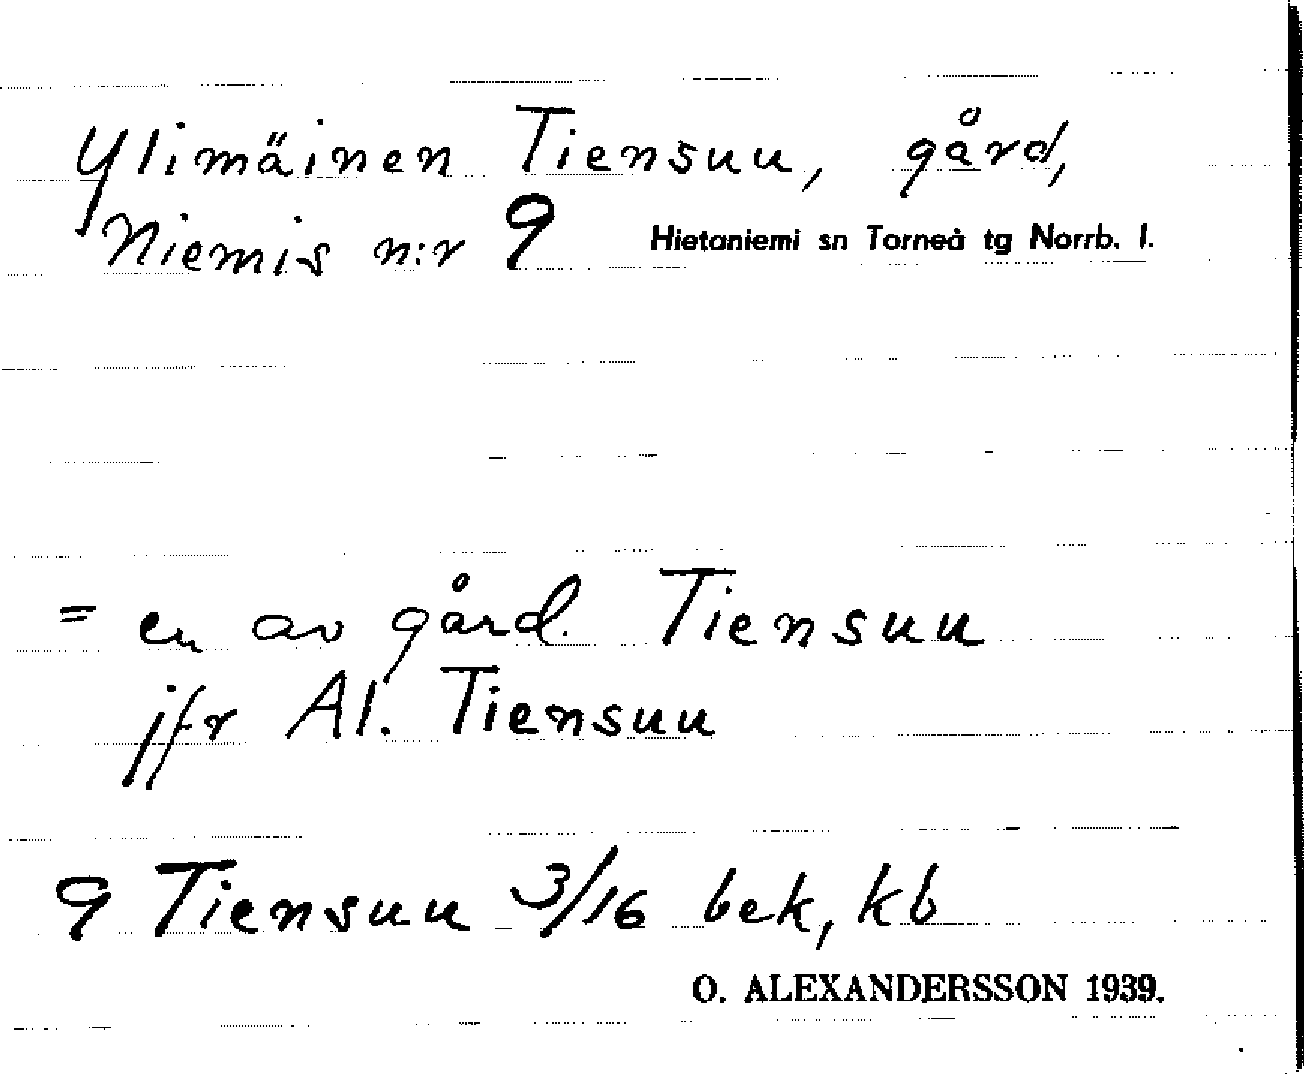 Ylimäinen Tiensuu, gård,
Niemis n:r 9 Hietaniemi sn Torneå tg Norrb. l.
= en av gård. Tiensuu
jfr Al. Tiensuu
9 Tiensuu 3/16 bek, kb
O. ALEXANDERSSON 1939.